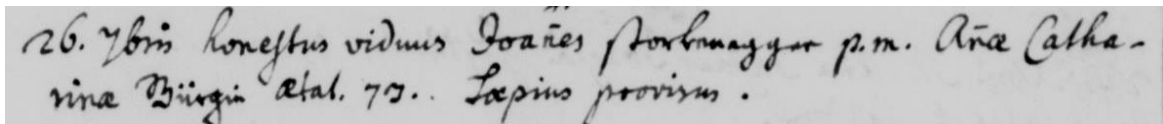 26. 7bris honestus viduus Joan̄es Storkenagger p.m. An̄æ Catha-
rinæ Bürgin Ætat. 73. Sæpius provisus.